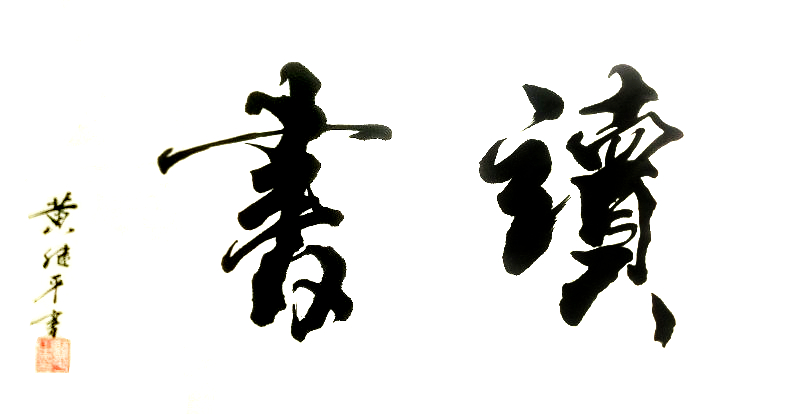 讀書
黄继平書